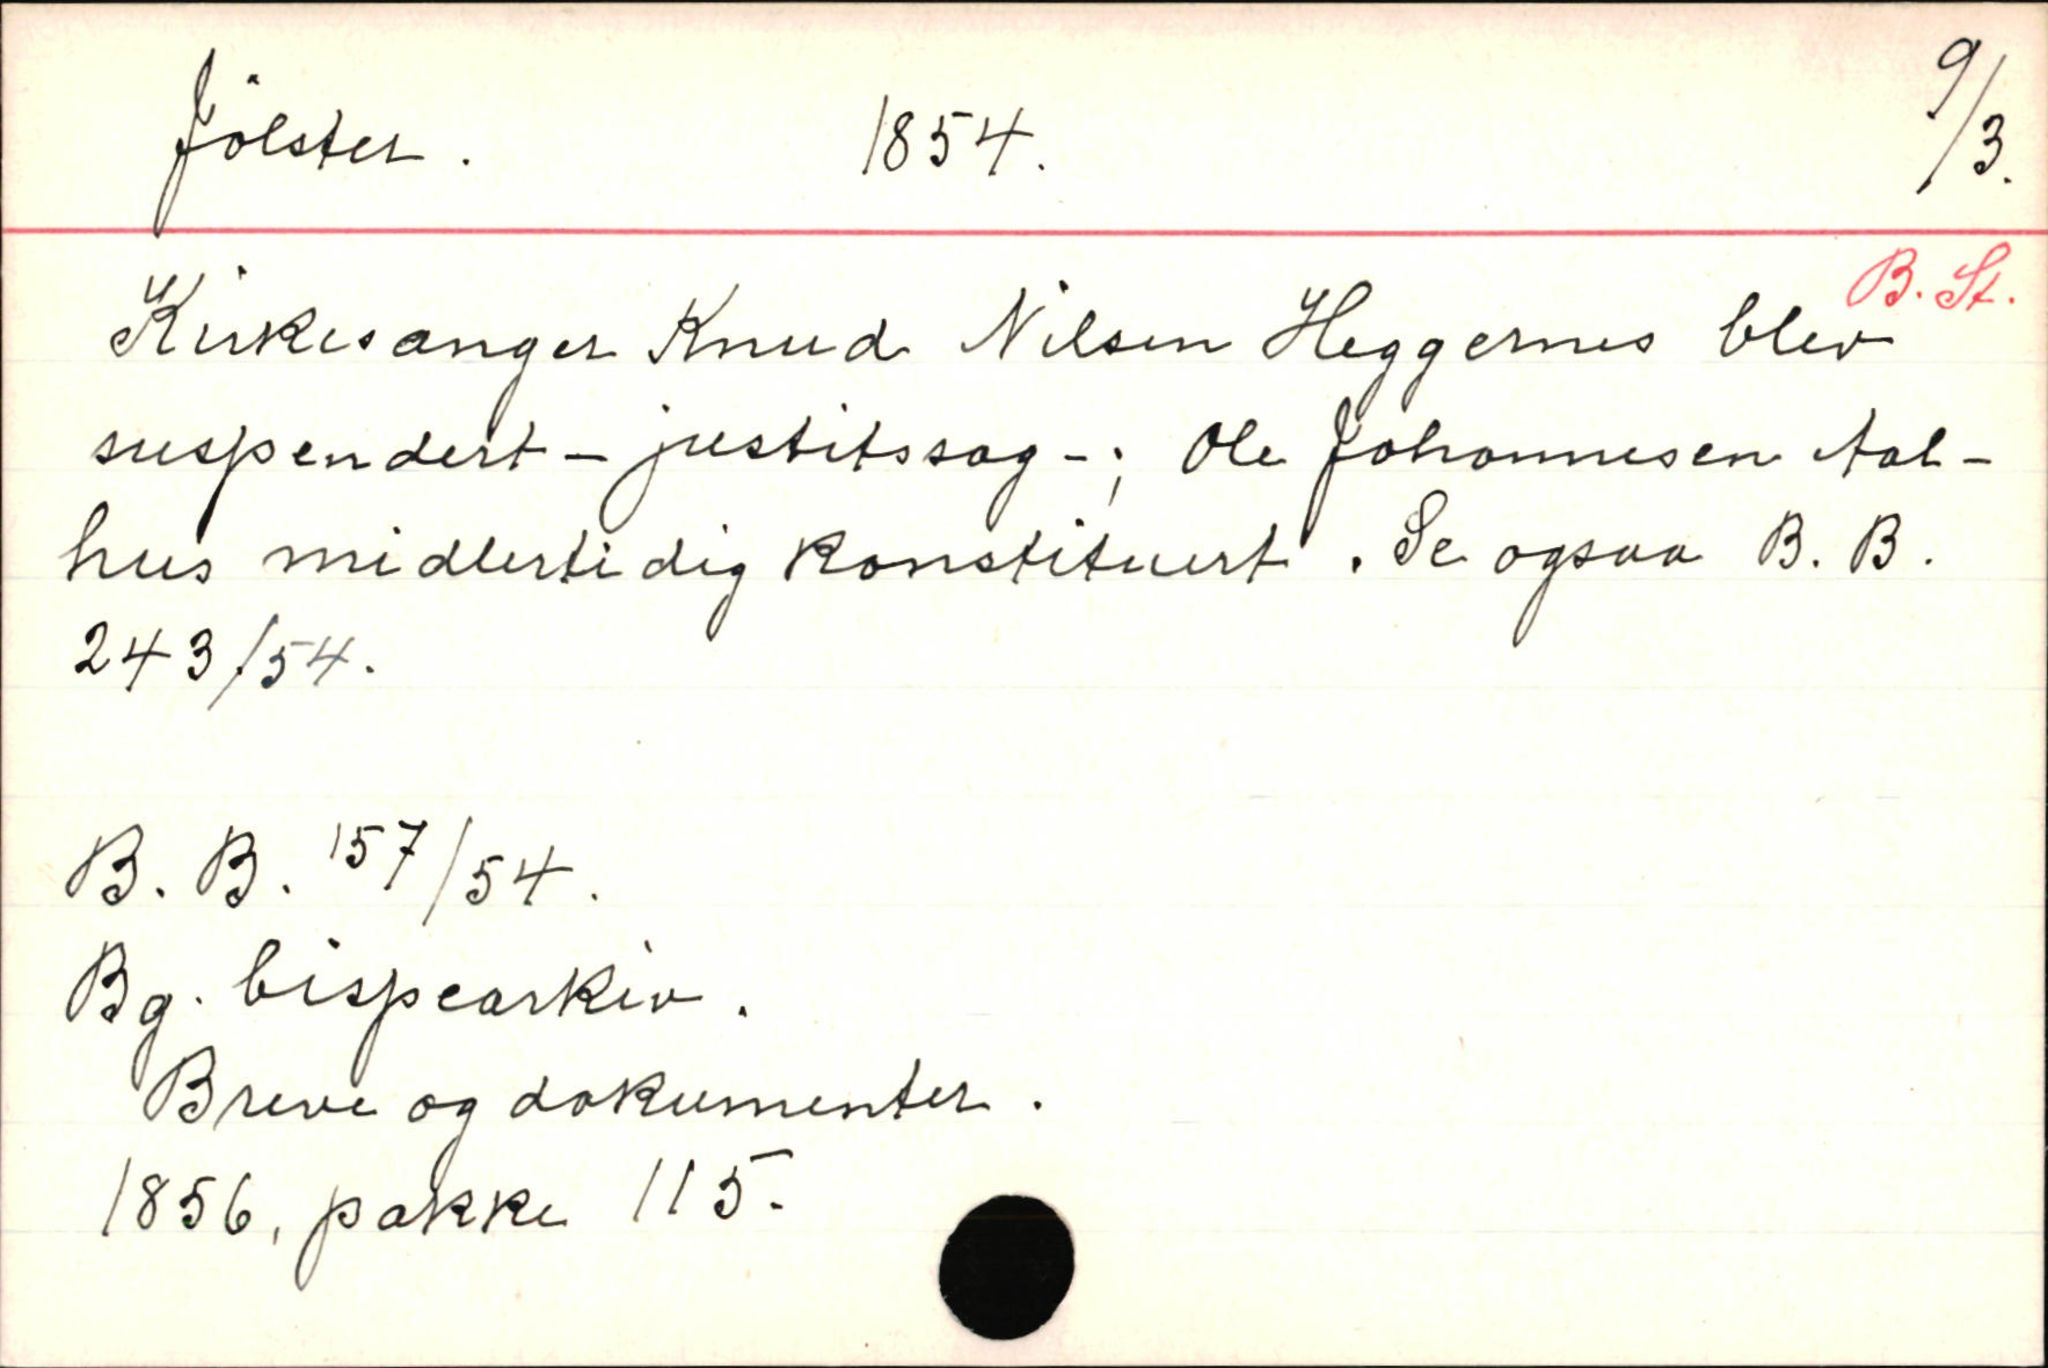 Jölster. 1854. 9/3.
B. St.
Kirkesanger Knud Nilsen Heggernes blev
suspendert – justitssag –; Ole Johannesen Aal-
hus midlertidig konstituert. Se ogsaa B. B.
243/54.
B. B. 157/54.
Bg. bispearkiv.
Breve og dokumenter.
1856, pakke 115.